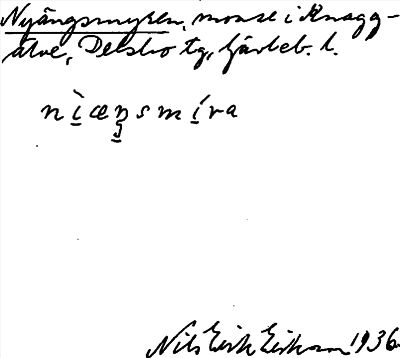 Nyängsmyren, mosse i Knagg-
älve, Delsbo tg, Gävleb. l.
nìæŋsmíra
Nils Erik Eriksson 1936